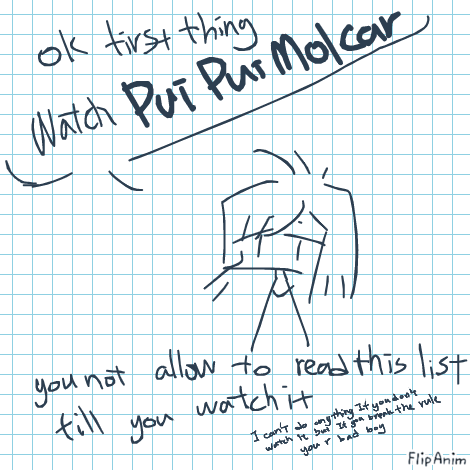 ok first thing
Watch Pui Pui Molcar
you not allow to read this list
till you watch it
I can't do anything If you don't
watch it but If you break the rule
you r bad boy
FlipAnim